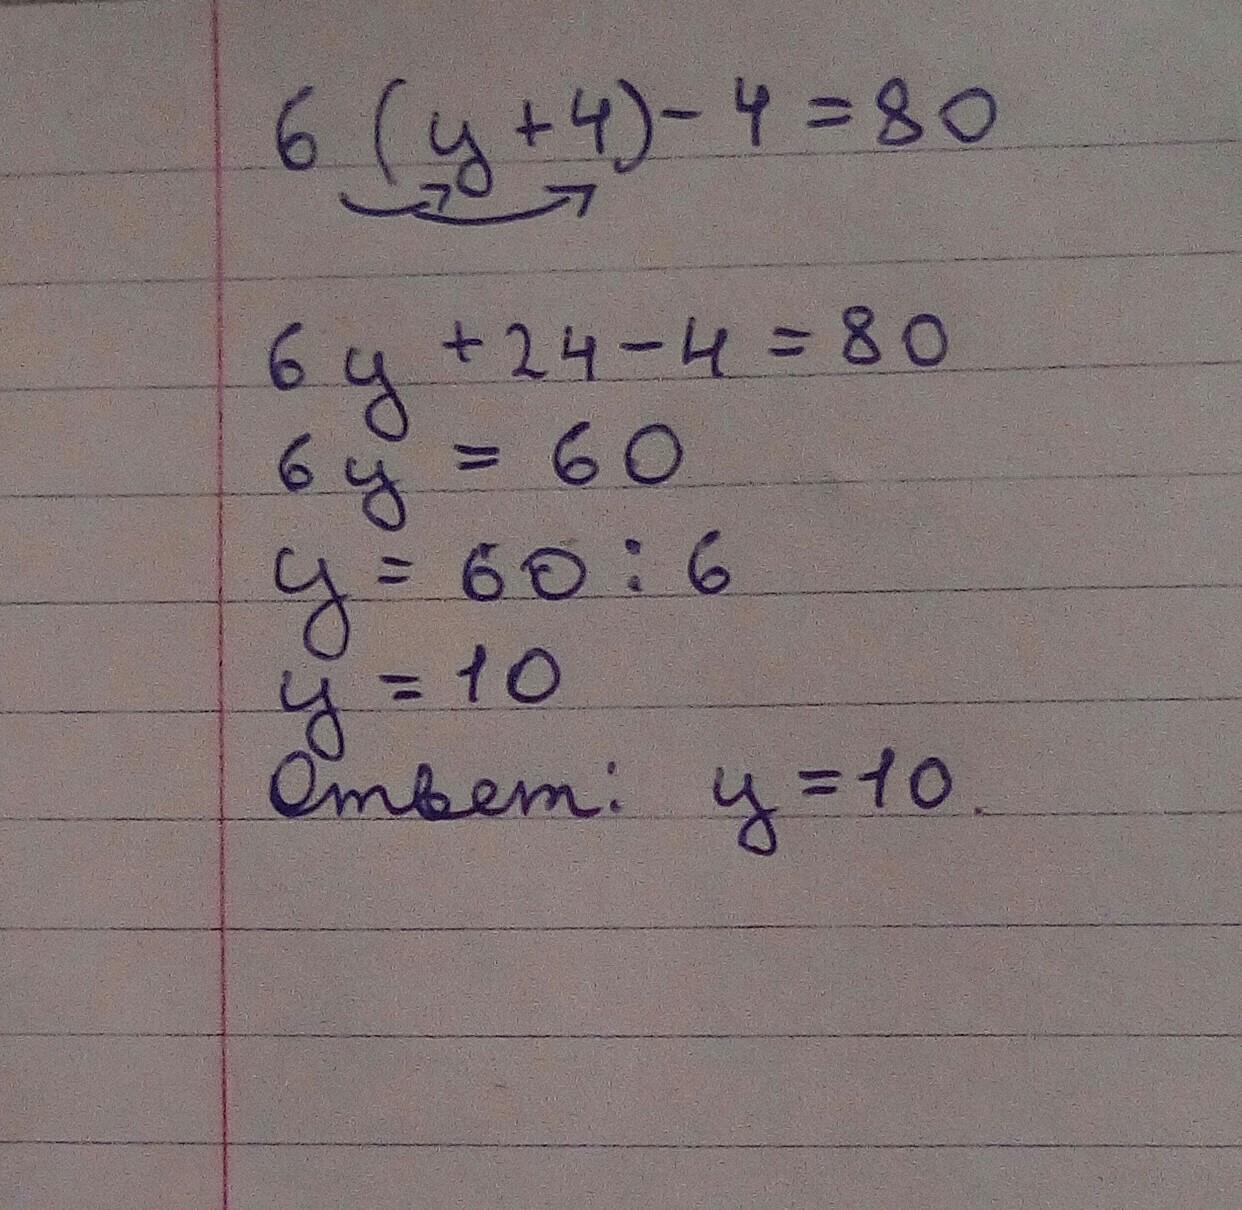 6(y+4)-4=80
6y+24-4=80
6y=60
y=60:6
y=10
Ответ: y=10.